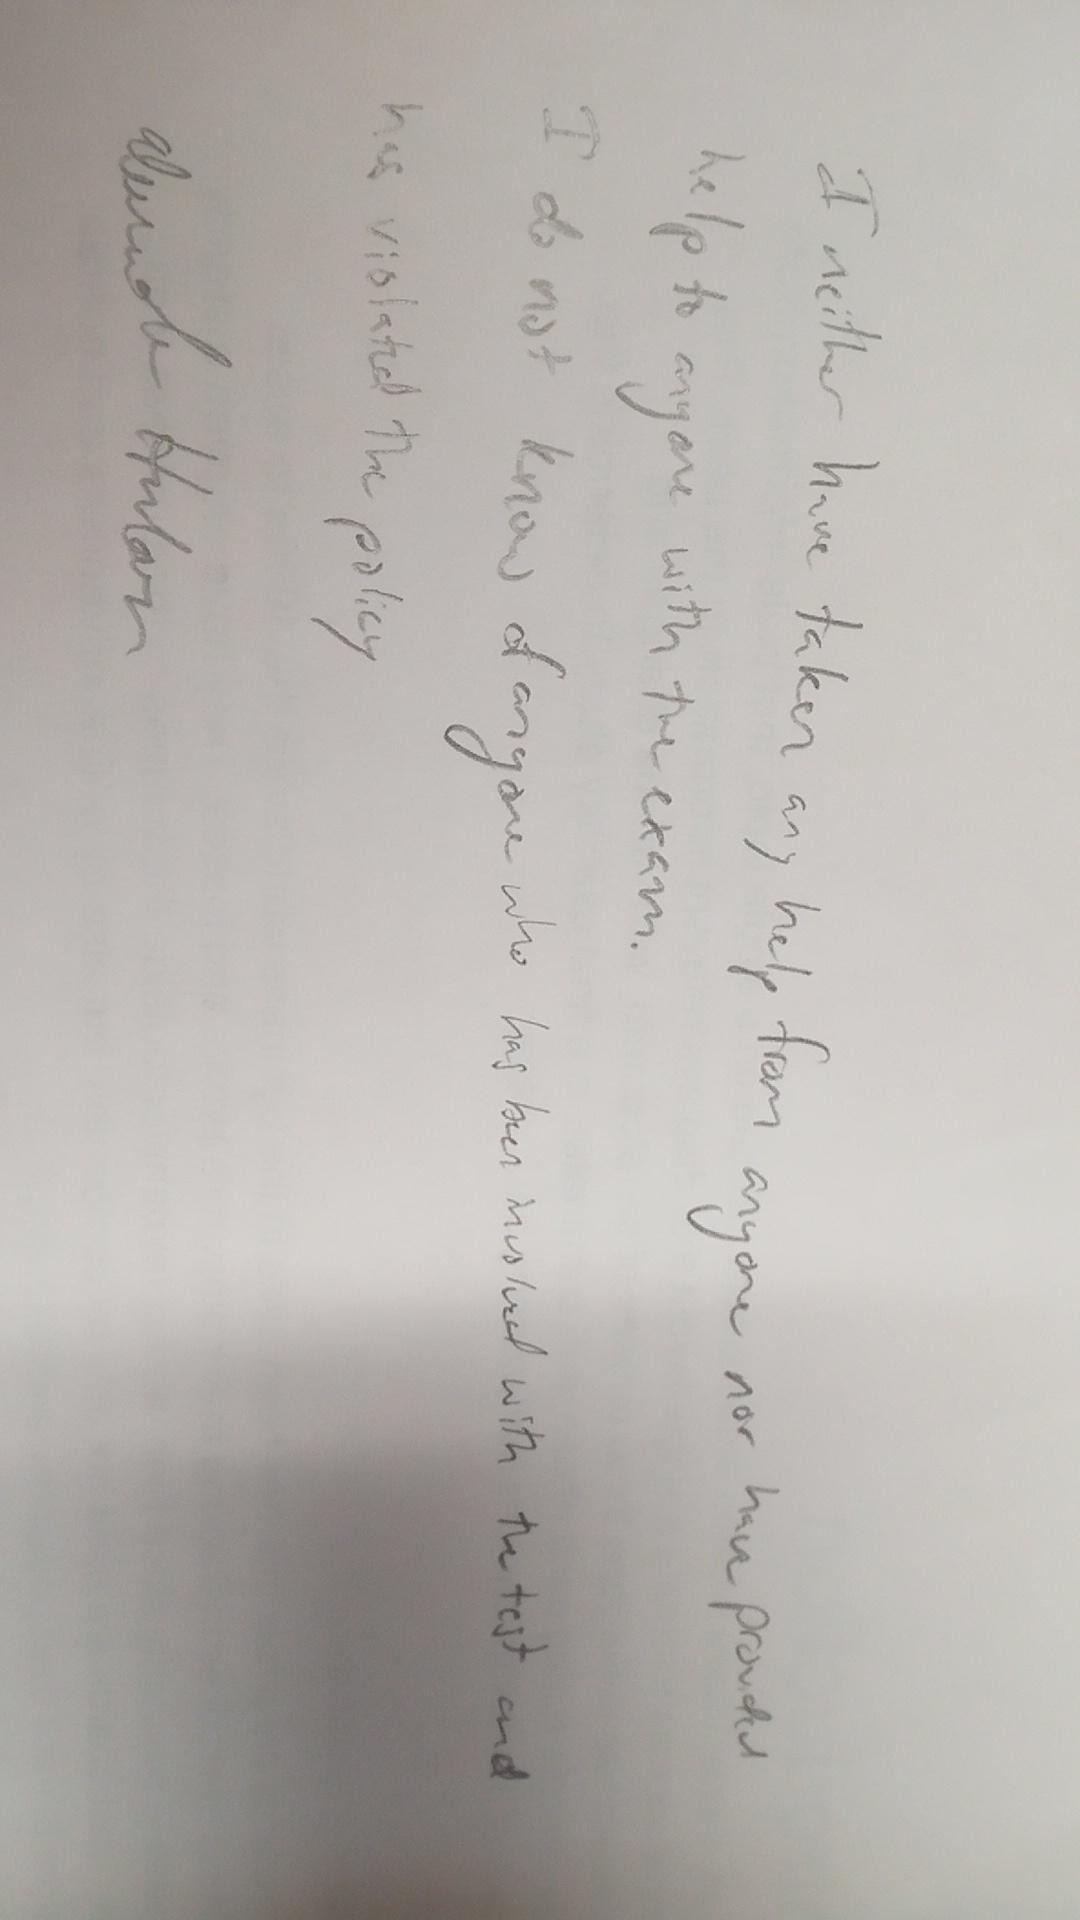 I neither have taken any help from anyone nor have provided
help to anyone with the exam.
I do not know of anyone who has been involved with the test and
has violated the policy